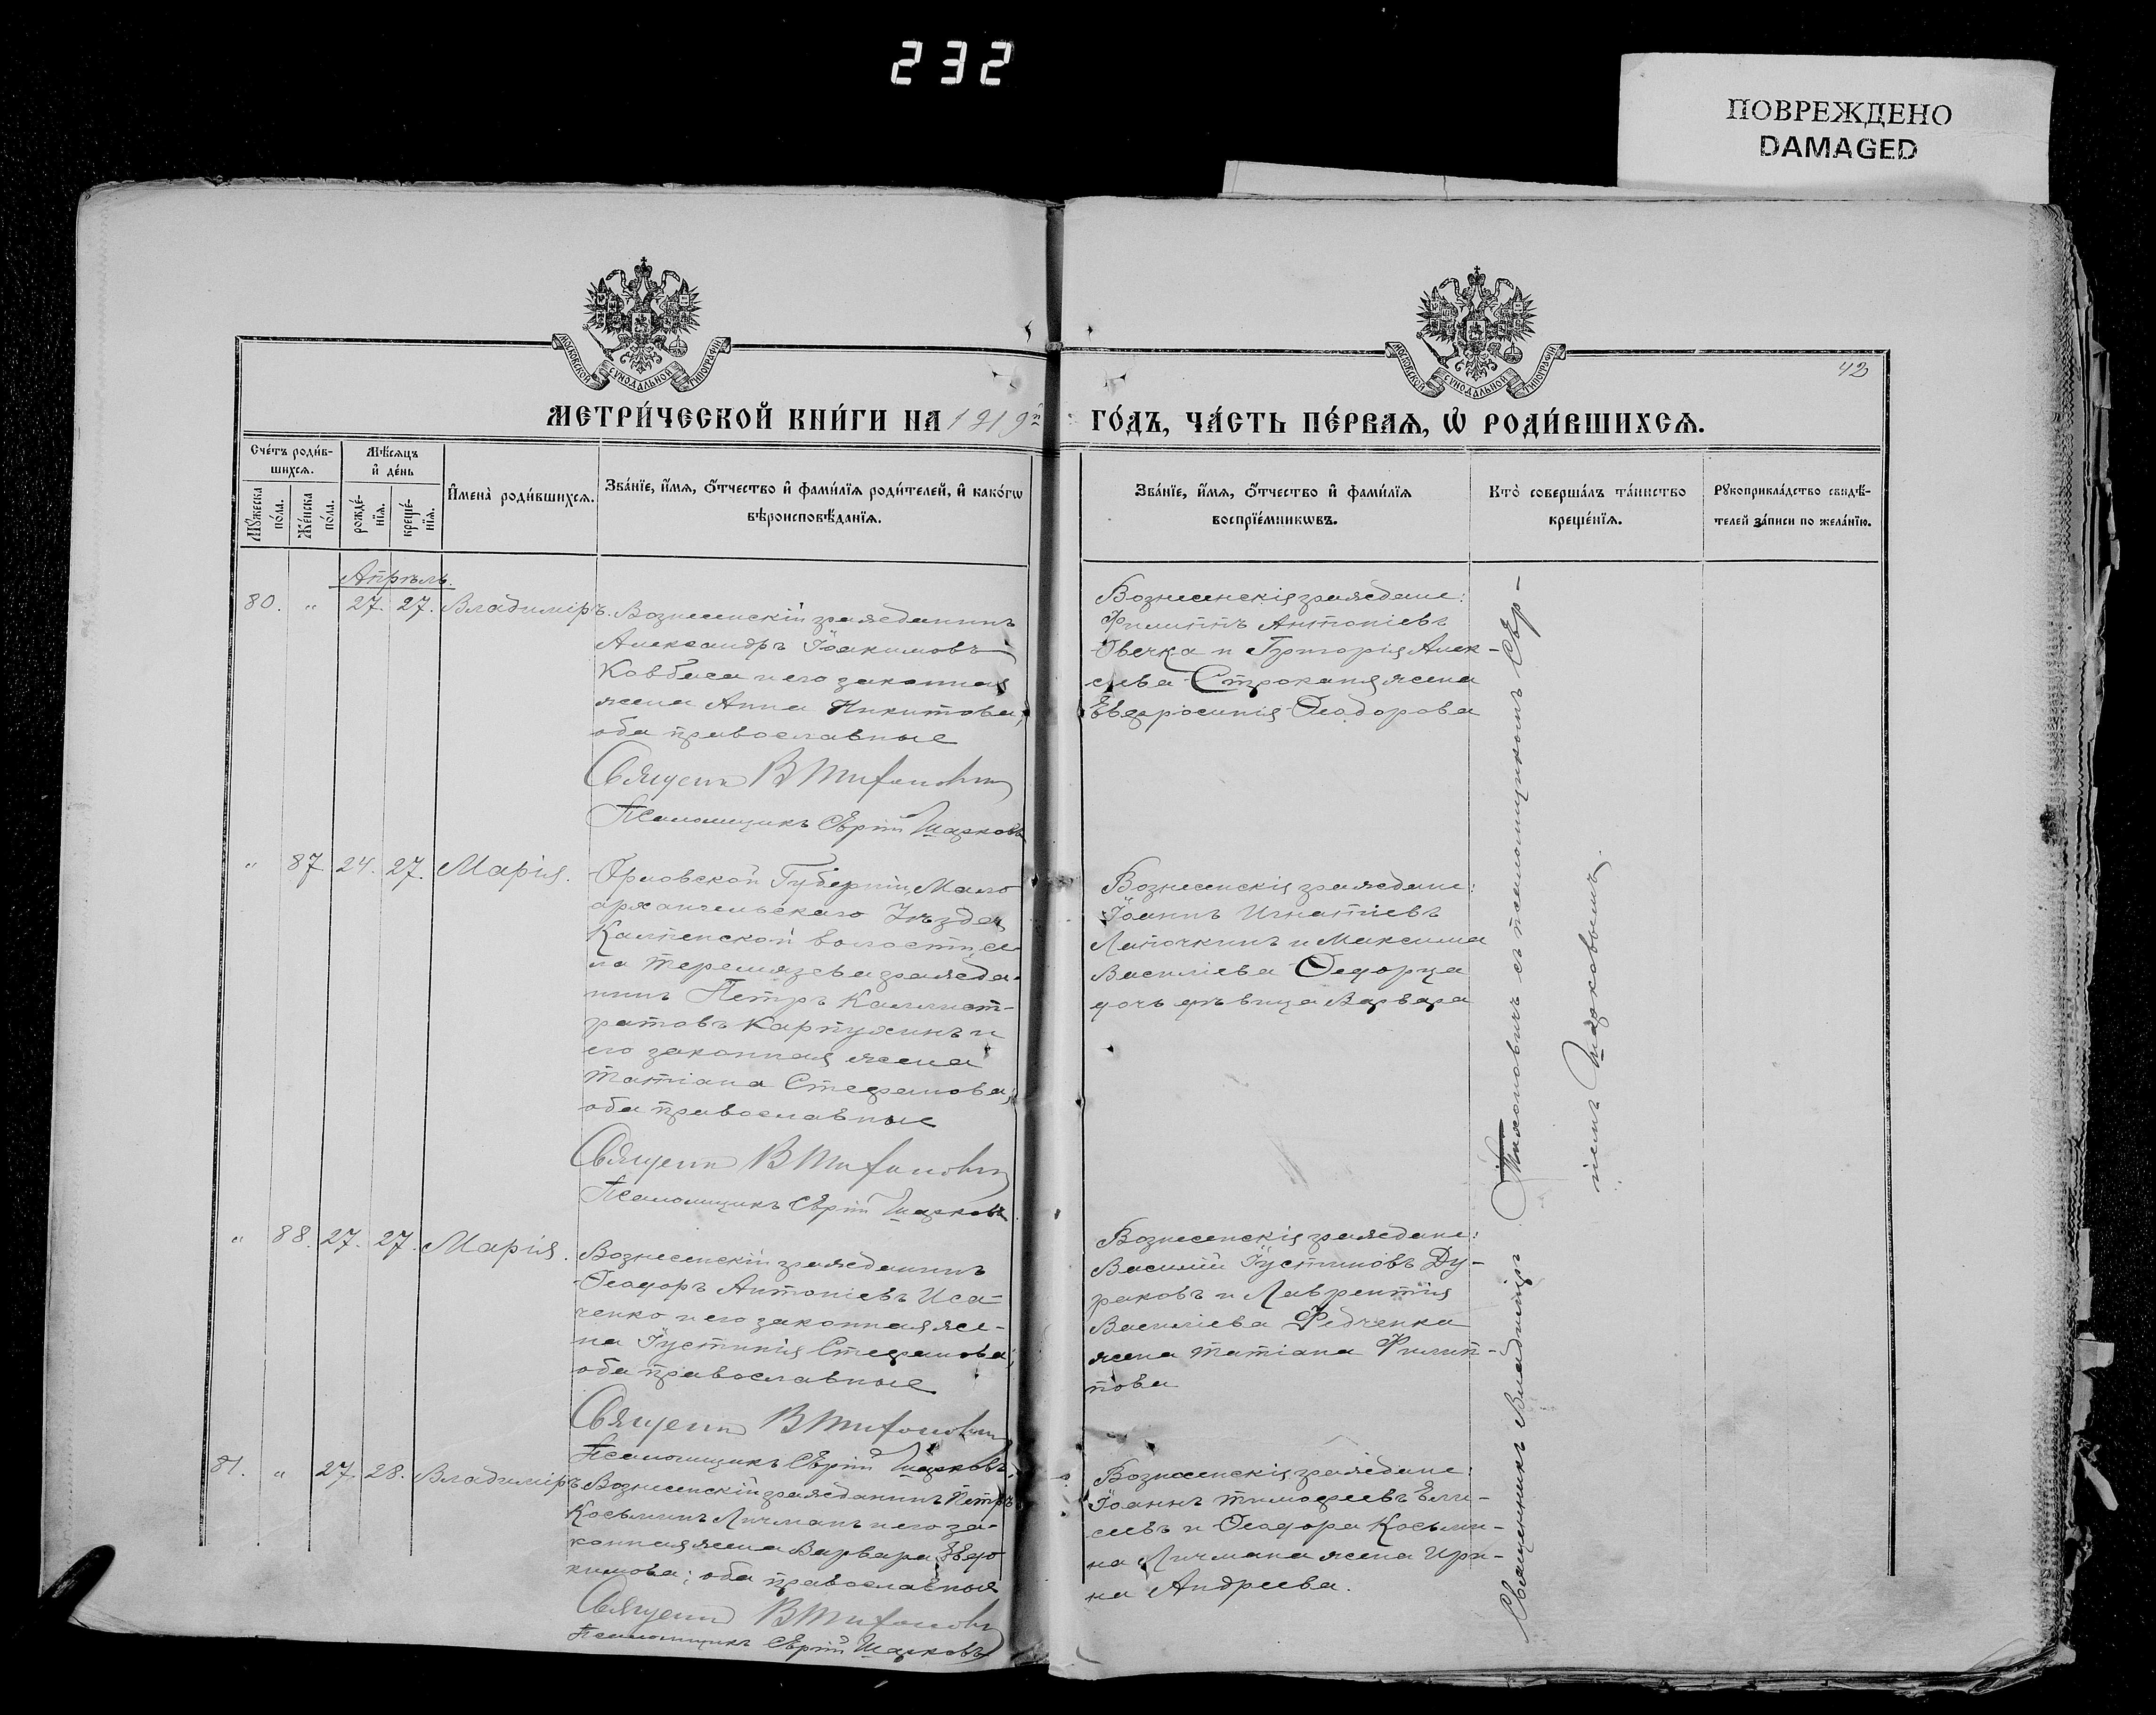 232
ПОВРЕЖДЕНО
DAMAGED
МОСКОВСКОЙ СѴНОДАЛЬНОЙ ТИПОГРАФІИ
МОСКОВСКОЙ СѴНОДАЛЬНОЙ ТИПОГРАФІИ
42
МЕТРИ́ЧЕСКОЙ КНИ́ГИ НА 1919й ГО́ДЪ, ЧА́СТЬ ПЕ́РВАѦ, Ѡ РОДИ́ВШИХСѦ.
Сче́тъ роди́в-
шихсѧ.
Мꙋжеска по́ла.
Же́нска по́ла.
Мѣ́сѧцъ
и҆ де́нь
рожде́-
нїѧ.
креще́-
нїѧ.
И҆мена̀ роди́вшихсѧ.
Зва́нїе, и҆́мѧ, ѻ҆́тчество и҆ фами́лїѧ роди́телей, и҆ како́гѡ
вѣроисповѣ́данїѧ.
Зва́нїе, и҆́мѧ, ѻ҆́тчество и҆ фами́лїѧ
воспрїе́мникѡвъ.
Кто̀ соверша́лъ та́инство
креще́нїѧ.
Рꙋкоприкла́дство свидѣ́-
телей за́писи по жела́нїю.
Апрѣль.
80. " 27. 27. Владиміръ.
Вознесенскій гражданинъ
Александръ Іоакимовъ
Ковбаса и его законная
жена Анна Никитова;
оба православные
Священ ВТихонович
Псаломщикъ Сергій Шарковъ
Вознесенскія граждане:
Филиппъ Антоніевъ
Овечка и Григорія Алек-
сіева Строканя жена
Евфросинія Ѳеодорова
" 87 24. 27. Марія.
Орловской Губерніи Мало
архангельскаго Уѣзда,
волости, се-
ла гражда-
нинъ Петръ Каллист-
ратовъ Карпухинъ и
его законная жена
Татіана Стефанова;
оба православные
Священ ВТихонович
Псаломщикъ Сергій Шарковъ
Вознесенскія граждане:
Іоаннъ Игнатіевъ
Лапочкинъ и Максима
Василіева Федорца
дочь дѣвица Варвара
" 88. 27. 27. Марія.
Вознесенскій гражданинъ
Ѳеодоръ Антоніевъ Иса-
ченко и его законная же-
на Іустинія Стефанова;
оба православные
Священ ВТихонович
Псаломщикъ Сергій Шарковъ
Вознесенскія граждане:
Василій Іустиновъ Ду-
раковъ и Лаврентія
Василіева Федченка
жена Татіана Филип-
пова
81. " 27. 28. Владиміръ
Вознесенскій гражданинъ Петръ
Косьминъ Личманъ и его за-
конная жена Варвара Евдо
кимова; оба православные
Священ ВТихонович
Псаломщикъ Сергій Шарковъ
Вознесенскія граждане:
Іоаннъ Тимофеевъ Ели-
сеевъ и Ѳеодора Косьми-
на Личмана жена Ири-
на Андреева.
Священникъ Владиміръ Тихоновичъ съ псаломщикомъ Сер-
гіемъ Шарковымъ.